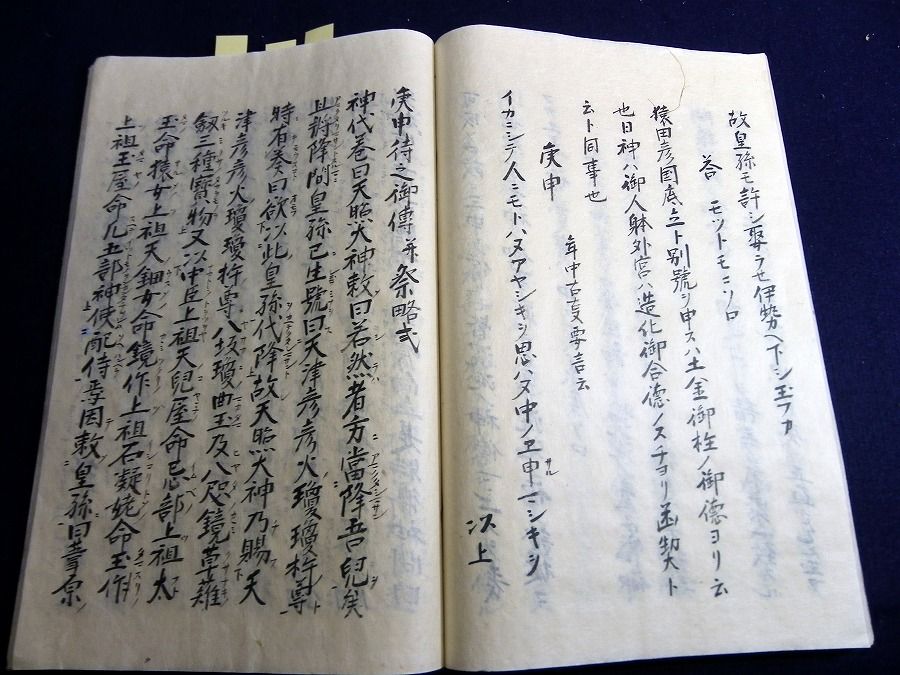 故皇孫モ許シ娶ラセ伊勢ヘ下シ玉フカ
答 モツトモニソロ
猿田彦国底立ト別號シ申スハ土金御柱ノ御德ヨリ云
也日神ハ御人躰外宮ハ造化御合德ノスチヨリ大ト
云ト同事也
庚申 年中古支要言云
イカニシテノ人ニモトハヌアヤシキシ思ハヌ中ノヱ申マシキシ
以上
庚申待之御傳并祭略式
神代巻曰天照大神敕曰若然者方當降吾兒矣
且將降間皇孫已生號曰天津彦彦火瓊瓊杵尊
時有奏曰欲以此皇孫代降故天照大神乃賜天
津彦彦火瓊瓊杵尊八坂瓊曲玉及八咫鏡草薙
釼三種寶物又以中臣上祖天兒屋命忌部上祖太
玉命猿女上祖天鈿女命鏡作上祖石凝姥命玉作
上祖玉屋命凡五部神使配侍焉因敕皇孫曰葦原